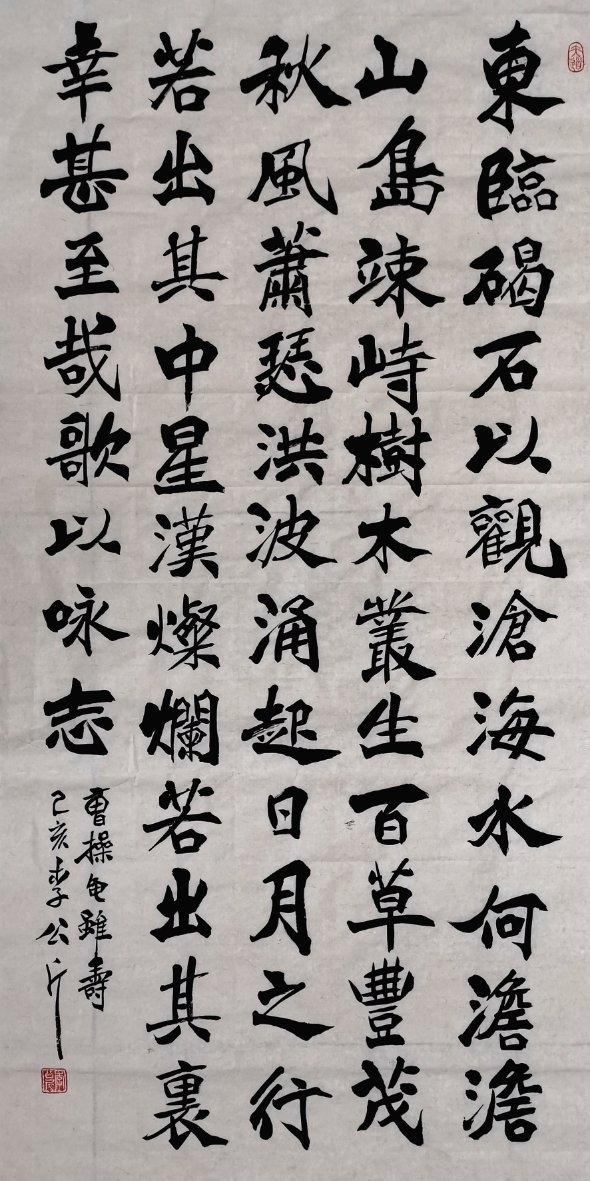 東臨碣石以觀滄海水何澹澹
山島竦峙樹木叢生百草豐茂
秋風蕭瑟洪波涌起日月之行
若出其中星漢燦爛若出其裏
幸甚至哉歌以咏志
曹操龟雖壽
己亥李公斤